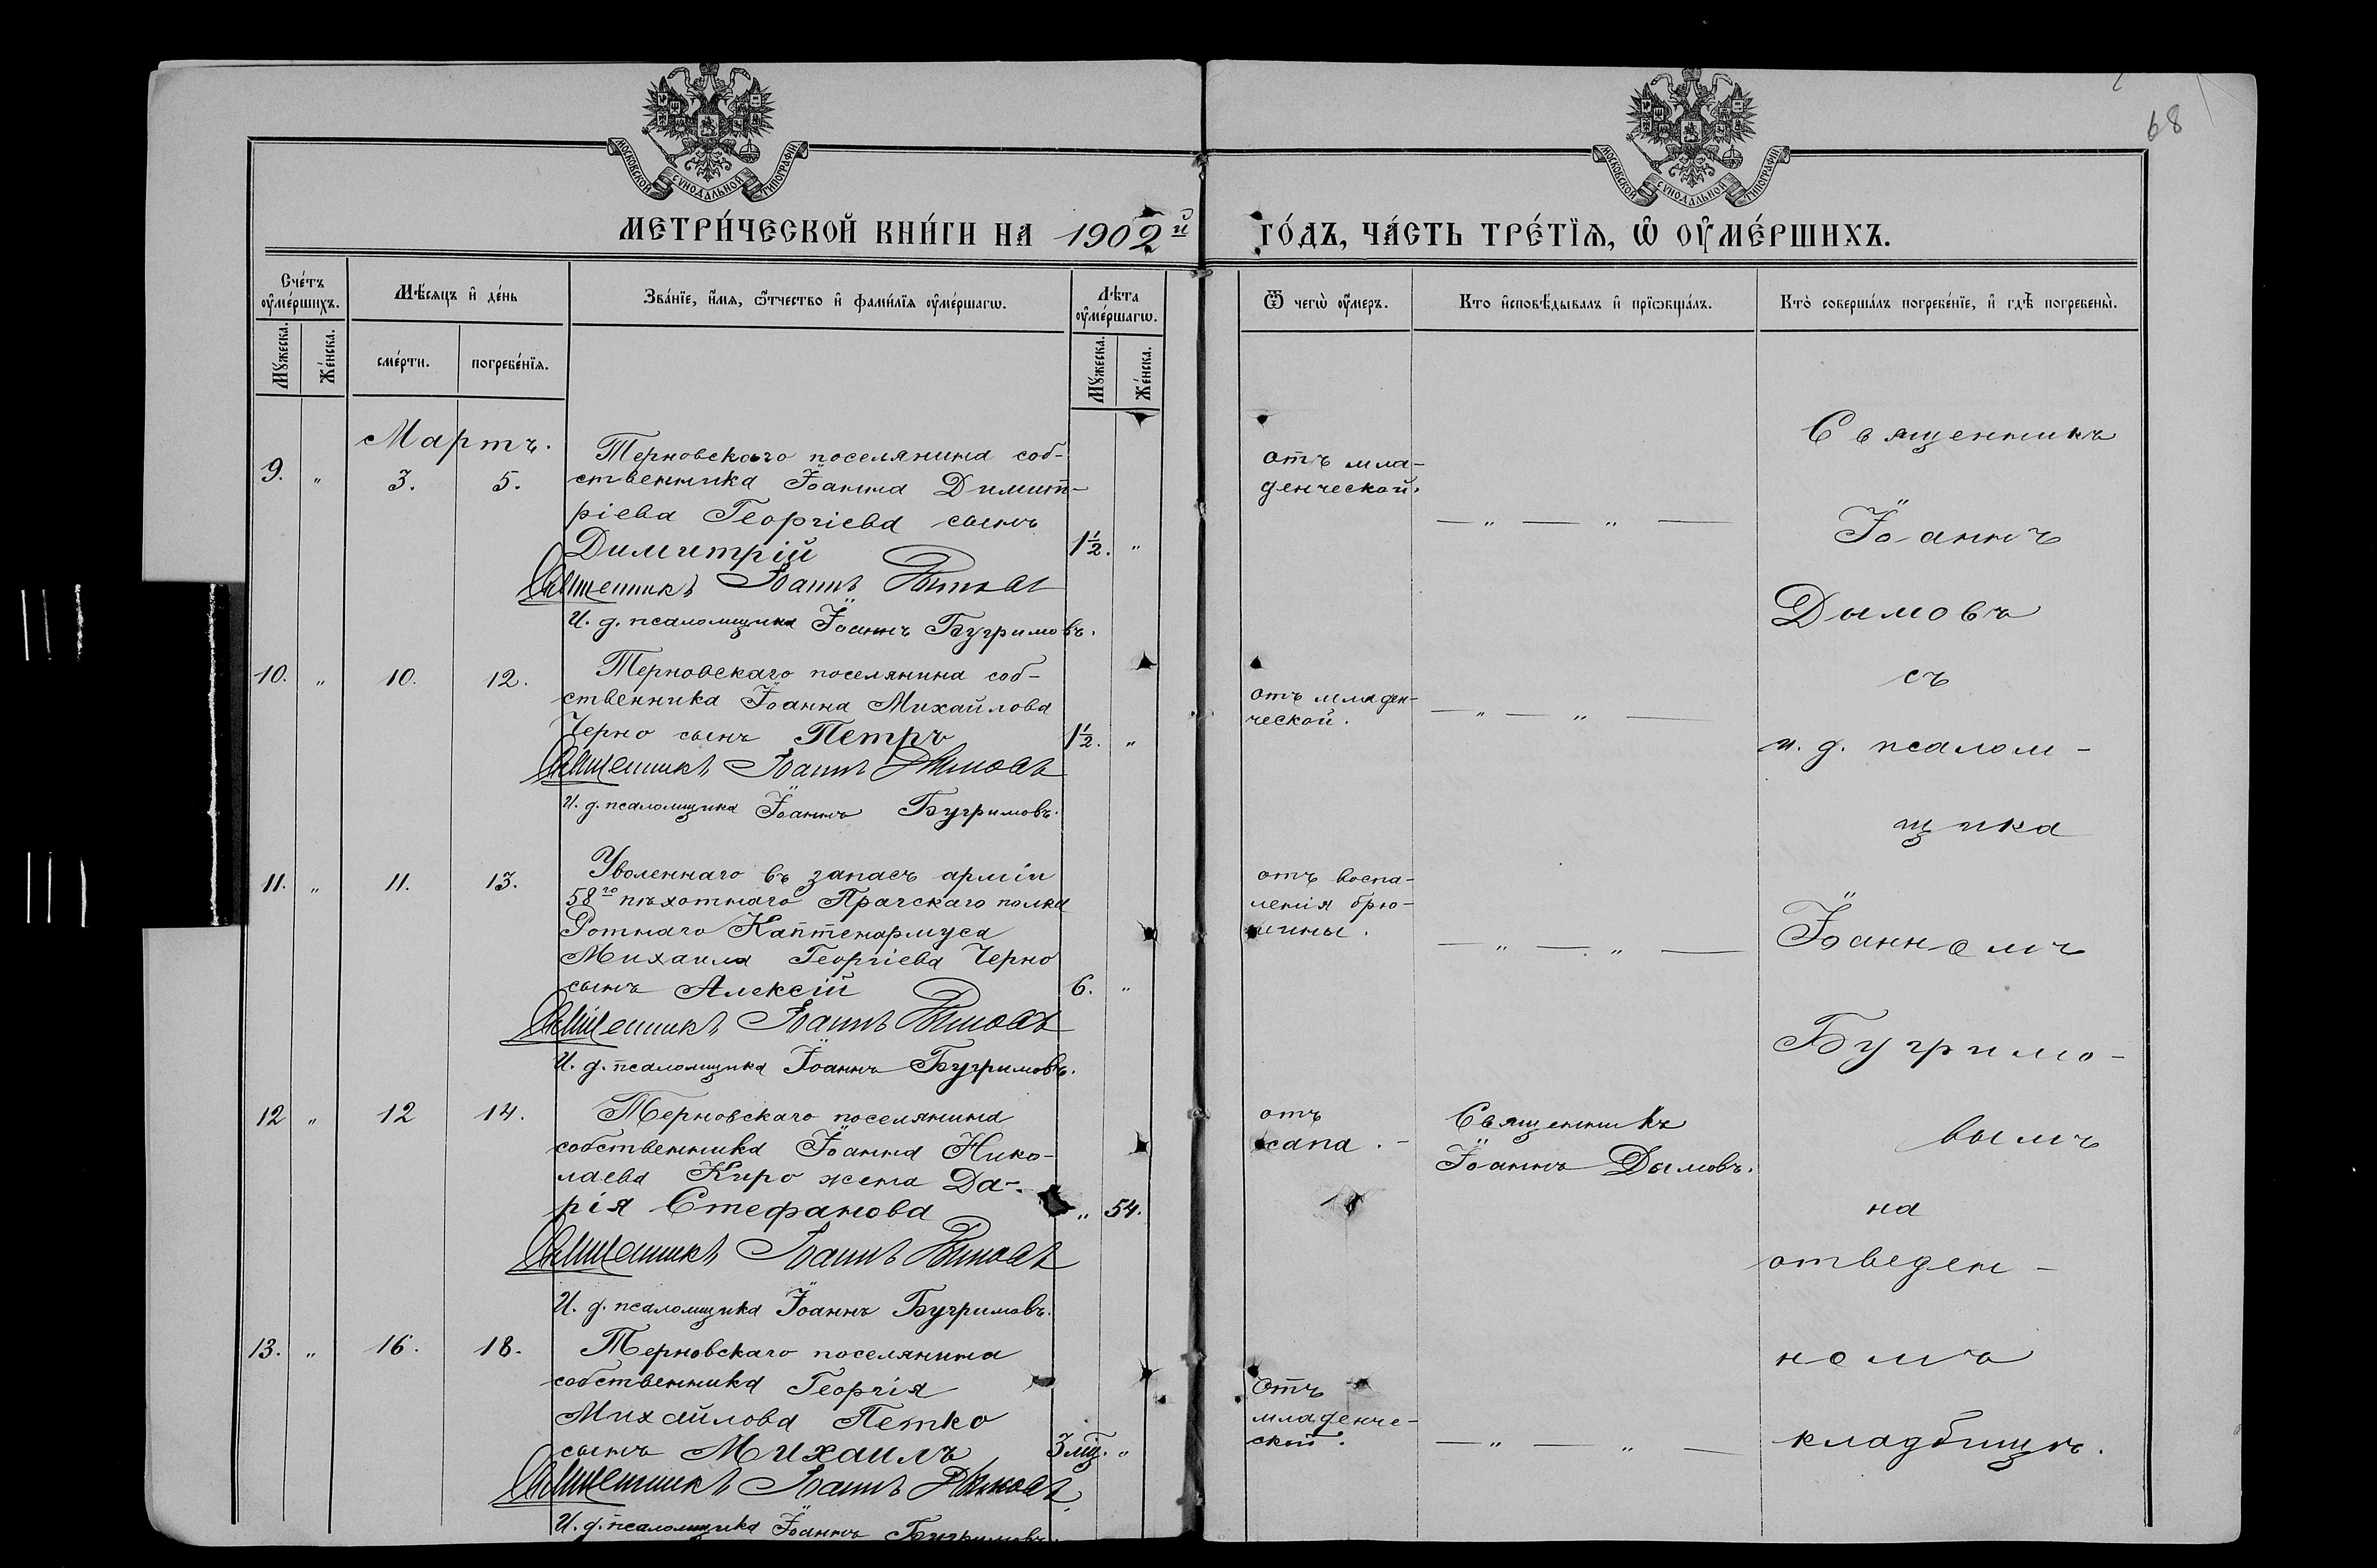 68
МОСКОВСКОЙ СѴНОДАЛЬНОЙ ТИПОГРАФІИ
МОСКОВСКОЙ СѴНОДАЛЬНОЙ ТИПОГРАФІИ
МЕТРИ́ЧЕСКОЙ КНИ́ГИ НА 1902й ГО́ДЪ, ЧА́СТЬ ТРЕ́ТЇѦ, Ѡ ОУ҆МЕ́РШИХЪ.
Сче́тъ оу҆ме́ршихъ.
Мꙋжеска.
Же́нска.
Мѣ́сяцъ и҆ де́нь
сме́рти.
погребе́нїѧ.
Зва́нїе, и҆́мѧ, ѻ҆́тчество и҆ фами́лїѧ оу҆ме́ршагѡ.
Лѣ́та оу҆ме́ршагѡ.
Мꙋжеска.
Же́нска.
Ѿ чегѡ̀ оу҆́меръ.
Кто и҆сповѣ́дывалъ и҆ прїѡбща́лъ.
Кто̀ соверша́лъ погребе́нїе, и҆ гдѣ̀ погребены̀.
Мартъ.
9. " 3. 5.
Терновскаго поселянина соб-
ственника Іоанна Димит-
ріева Георгіева сынъ
Димитрій 1½. "
Священникъ Іоаннъ Дымовъ
И. д. псаломщика Іоаннъ Бугримовъ.
отъ мла-
денческой.
— " — " —
10. " 10. 12.
Терновскаго поселянина соб-
ственника Іоанна Михайлова
Черно сынъ Петръ 1½. "
Священникъ Іоаннъ Дымовъ
И. д. псаломщика Іоаннъ Бугримовъ.
отъ младен-
ческой.
— " — " —
11. " 11. 13.
Уволеннаго въ запасъ арміи
58го пѣхотнаго Прагскаго полка
Ротнаго Каптенармуса
Михаила Георгіева Черно
сынъ Алексій 6. "
Священникъ Іоаннъ Дымовъ
И. д. псаломщика Іоаннъ Бугримовъ.
отъ воспа-
ленія брю-
шины.
— " — " —
12 " 12 14.
Терновскаго поселянина
собственника Іоанна Нико-
лаева Киро жена Да-
рія Стефанова " 54.
Священникъ Іоаннъ Дымовъ
И. д. псаломщика Іоаннъ Бугримовъ.
отъ
сапа. -
Священникъ
Іоаннъ Дымовъ.
13. " 16. 18.
Терновскаго поселянина
собственника Георгія
Михайлова Петко
сынъ Михаилъ 3 мц. "
Священникъ Іоаннъ Дымовъ
И. д. псаломщика Іоаннъ Бугримовъ.
отъ
младенче-
ской.
— " — " —
Священникъ
Іоаннъ
Дымовъ
съ
и. д. псалом-
щика
Іоанномъ
Бугримо-
вымъ
на
отведен-
номъ
кладбищѣ.